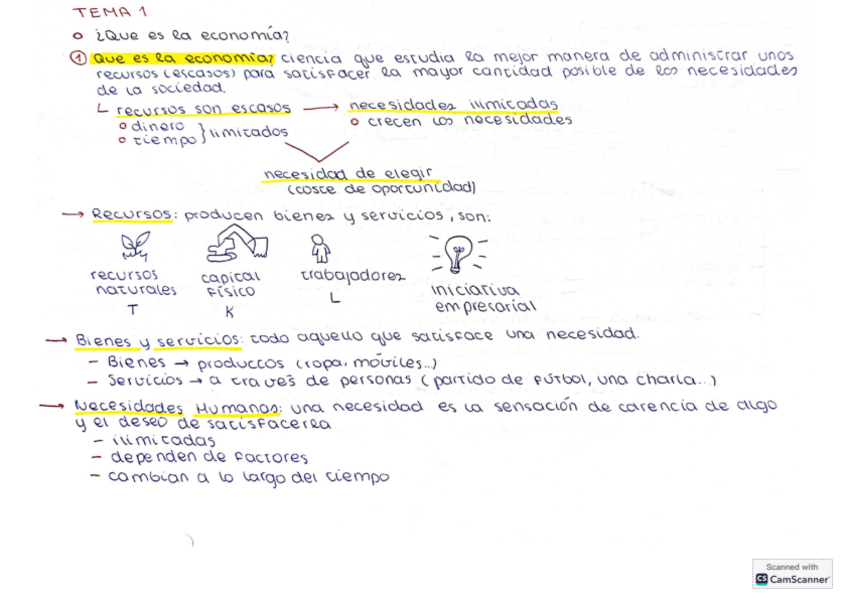 TEMA 1
¿Que es la economía?
① Que es la economia? ciencia que estudia la mejor manera de administrar unos
recursos (escasos) para satisfacer la mayor cantidad posible de las necesidades
de la sociedad.
recursos son escasos → necesidades ilimitadas
dinero
tiempo } limitados
crecen las necesidades
necesidad de elegir
(coste de oportunidad)
→ Recursos: producen bienes y servicios, son:
recursos naturales
T
capital físico
K
trabajadores
L
iniciativa empresarial
→ Bienes y servicios: todo aquello que satisface una necesidad.
- Bienes → productos (ropa, móviles...)
- Servicios → a través de personas (partido de fútbol, una charla...)
→ Necesidades Humanas: una necesidad es la sensación de carencia de algo
y el deseo de satisfacerla
- ilimitadas
- dependen de factores
- cambian a lo largo del tiempo
Scanned with
CS CamScanner